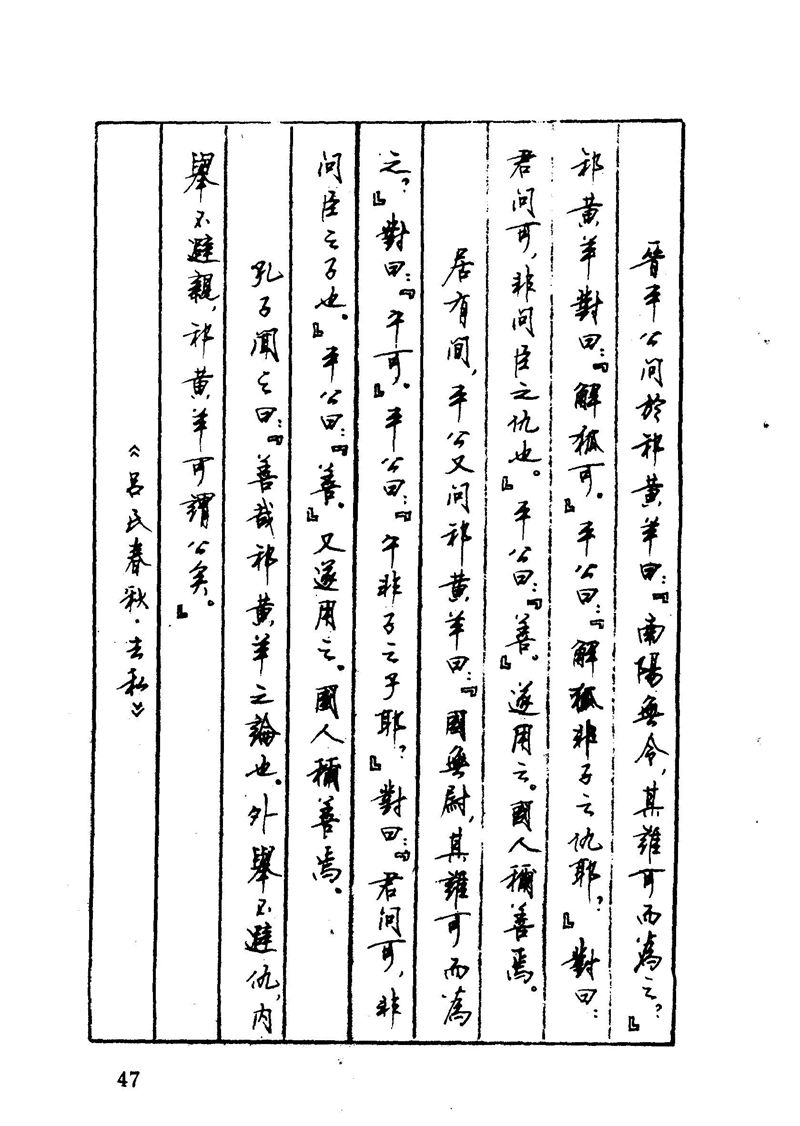 晉平公問於祁黃羊曰：『南陽無令，其誰可而為之？』
祁黃羊對曰：『解狐可。』平公曰：『解狐非子之仇耶？』對曰：
君問可，非問臣之仇也。』平公曰：『善。』遂用之。國人稱善焉。
居有間，平公又問祁黃羊曰：『國無尉，其誰可而為
之？』對曰：『午可。』平公曰：『午非子之子耶？』對曰：『君問可，非
問臣之子也。』平公曰：『善。』又遂用之。國人稱善焉。
孔子聞之曰：『善哉祁黃羊之論也。外舉不避仇，內
舉不避親，祁黃羊可謂公矣。』
《吕氏春秋·去私》
47